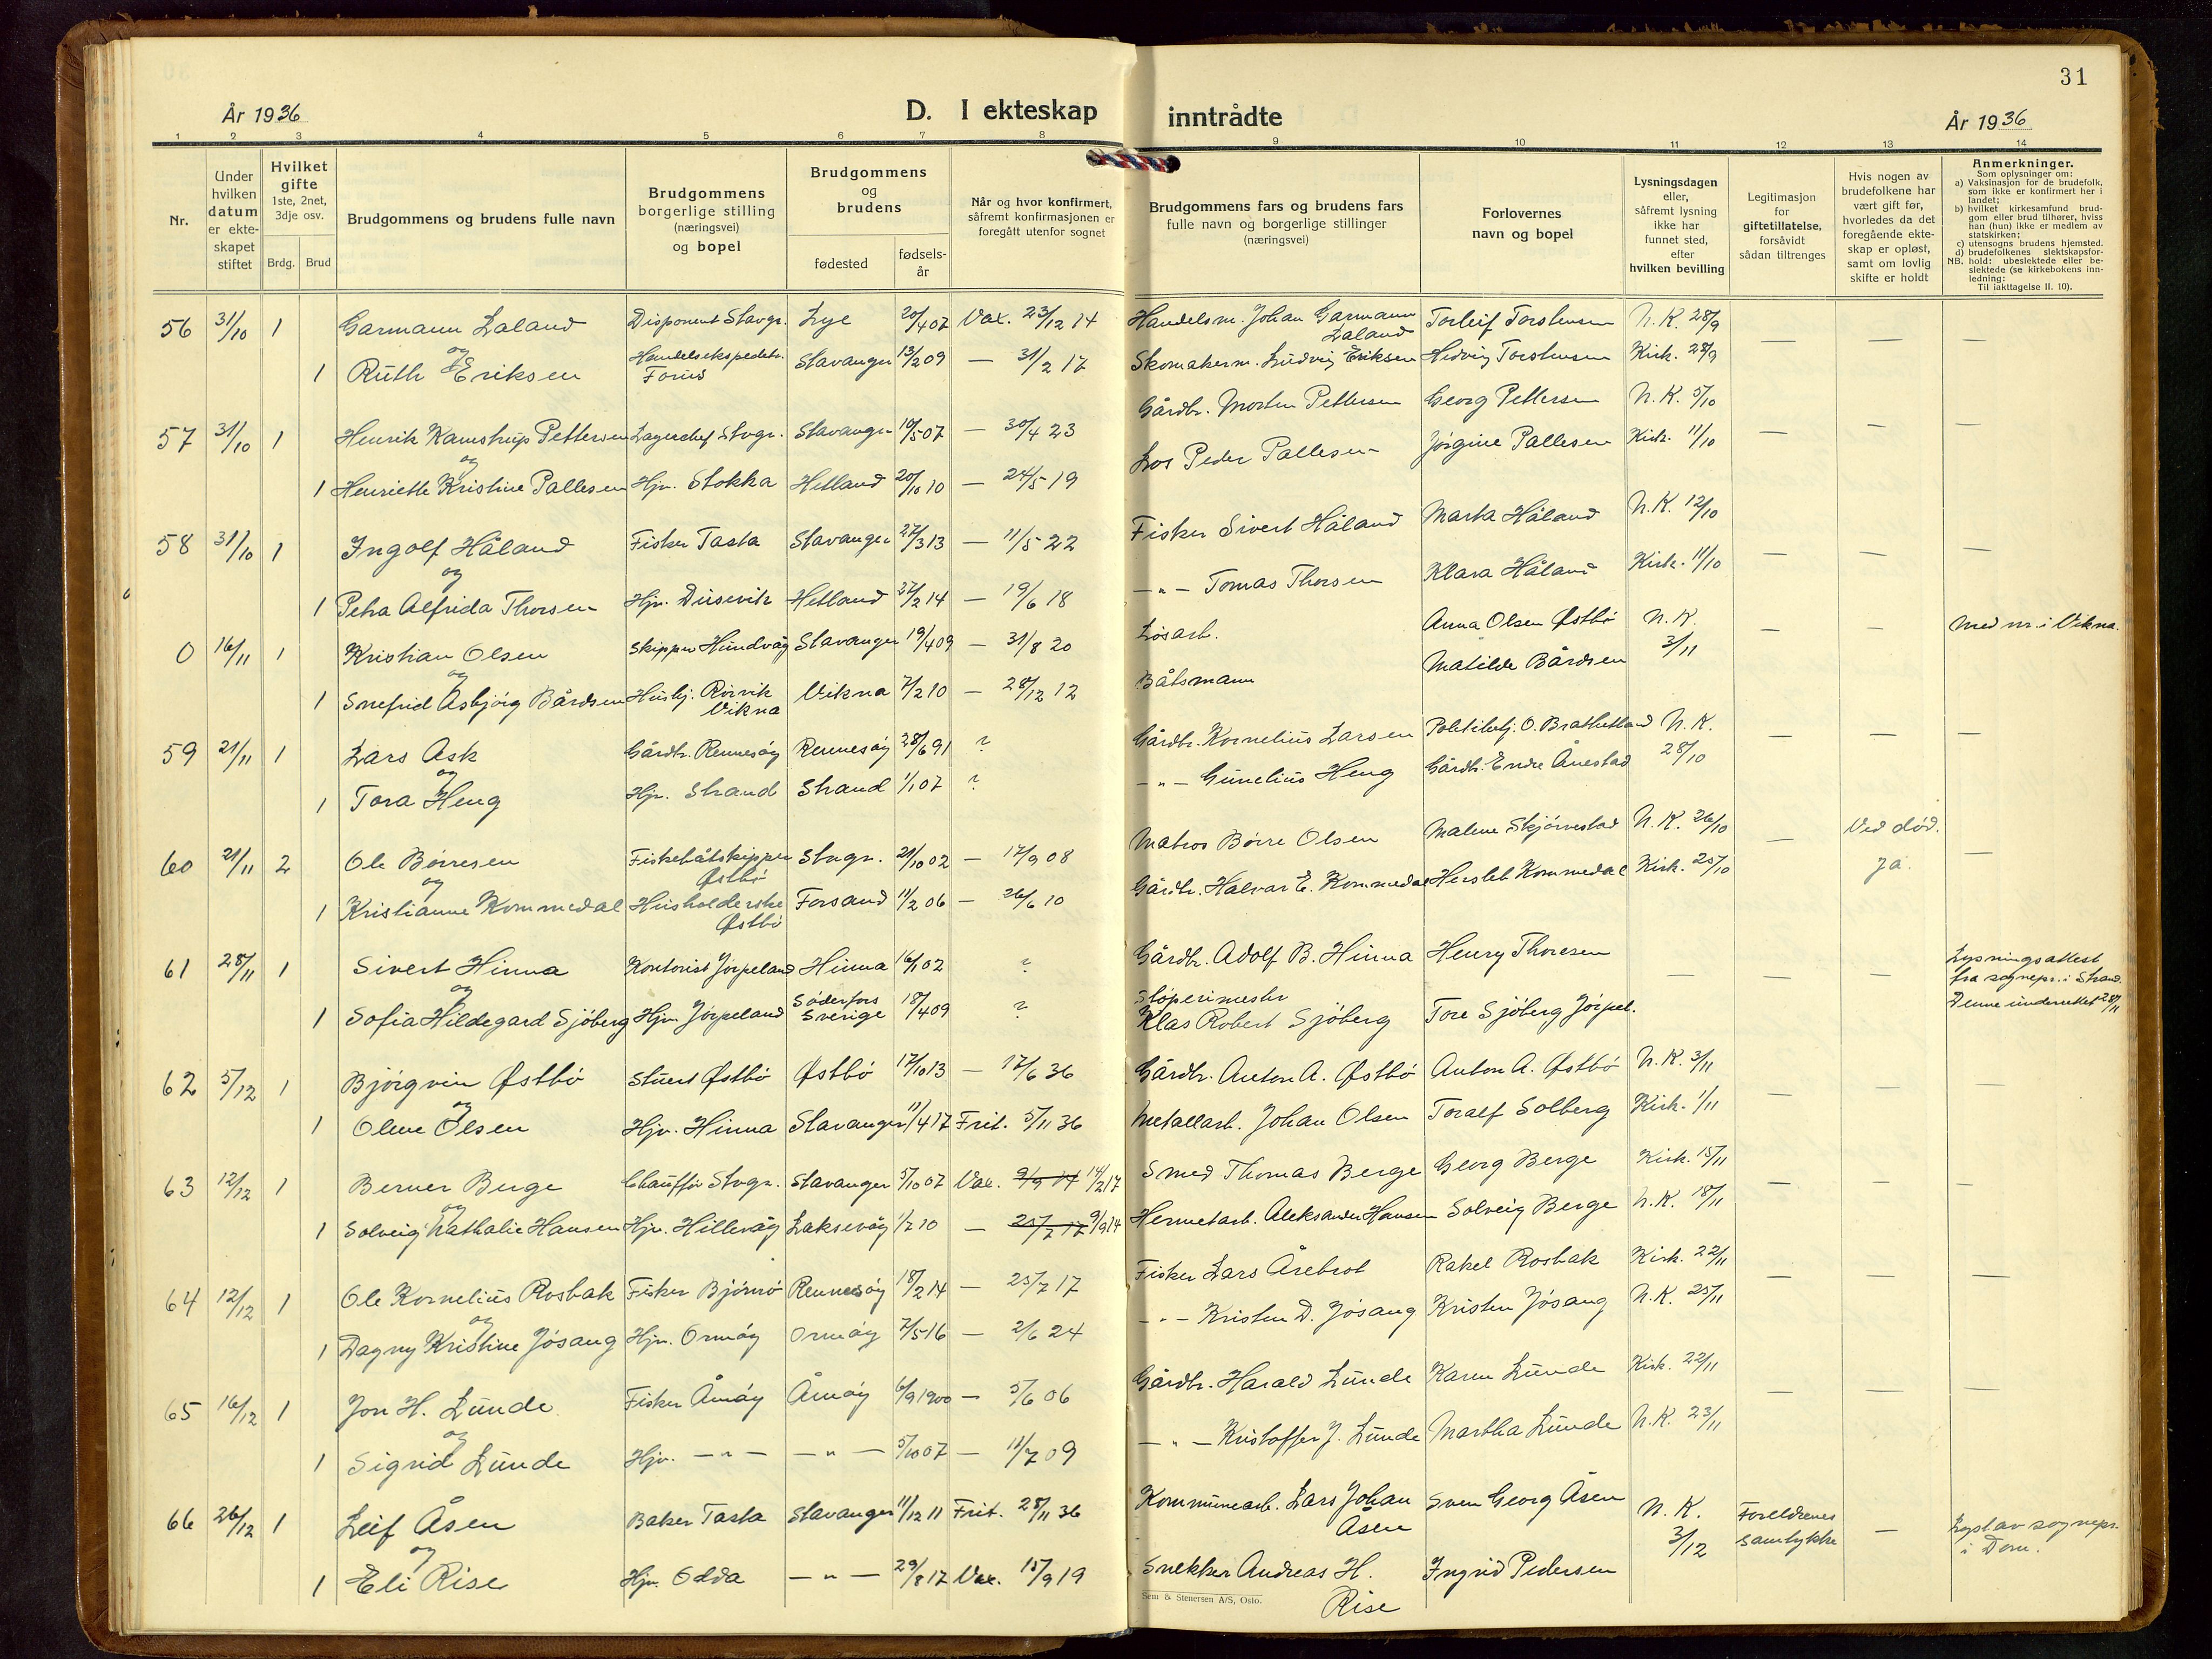 31
År 1936
D. I ekteskap inntrådte
År 1936
1 2 3 4 5 6 7 8 9 10 11 12 13 14
Nr.
Under hvilken datum er ekteskapet stiftet
Hvilket gifte 1ste, 2net, 3dje osv.
Brdg. Brud
Brudgommens og brudens fulle navn
Brudgommens borgerlige stilling (næringsvei) og bopel
Brudgommens og brudens
fødested
fødsels-år
Når og hvor konfirmert, såfremt konfirmasjonen er foregått utenfor sognet
Brudgommens fars og brudens fars fulle navn og borgerlige stillinger (næringsvei)
Forlovernes navn og bopel
Lysningsdagen eller, såfremt lysning ikke har funnet sted, efter hvilken bevilling
Legitimasjon for giftetillatelse, forsåvidt sådan tiltrenges
Hvis nogen av brudefolkene har vært gift før, hvorledes da det foregående ekteskap er opløst, samt om lovlig skifte er holdt
Anmerkninger.
Som oplysninger om:
a) Vaksinasjon for de brudefolk, som ikke er konfirmert her i landet;
b) hvilket kirkesamfund brudgom eller brud tilhører, hviss han (hun) ikke er medlem av statskirken;
c) utensogns brudens hjemsted.
d) brudefolkenes slektskapsforhold: ubeslektede eller beslektede (se kirkebokens innledning:
NB. Til iakttagelse II. 10).
56 31/10 1 Garmann Laland Disponent Stavgr. Lye 20/4 07 Vax. 23/12 14 Handelsm. Johan Garmann Laland Torleif Torstensen N.K. 28/9 — — —
og
1 Ruth Eriksen Handelsekspeditr. Forus Stavanger 13/2 09 — 31/2 17 Skomakerm. Ludvig Eriksen Hedvig Torstensen Kirk. 28/9
57 31/10 1 Henrik Kamstrup Pettersen Lagerchef Stvgr. Stavanger 10/5 07 — 30/4 23 Gårdbr. Morten Pettersen Georg Pettersen N.K. 5/10 — — —
og
1 Henriette Kristine Pallesen Hjv. Stokka Hetland 20/10 10 — 24/5 19 Los Peder Pallesen Jørgine Pallesen Kirk. 11/10
58 31/10 1 Ingolf Håland Fisker Tasta Stavanger 27/3 13 — 11/5 22 Fisker Sivert Håland Marta Håland N.K. 12/10 — — —
og
1 Petra Alfrida Thorsen Hjv. Dusevik Hetland 27/2 14 — 19/6 18 —"— Tomas Thorsen Klara Håland Kirk. 11/10
0 16/11 1 Kristian Olsen Skipper Hundvåg Stavanger 19/4 09 — 31/8 20 Løsarb. Anna Olsen Østbø N.K. 3/11 — — Med nr. i Vikna.
og
1 Snefrid Asbjørg Bårdsen Husbj. Rørvik Vikna Vikna 7/2 10 — 28/12 12 Båtsmann Matilde Bårdsen
59 21/11 1 Lars Ask Gårdbr. Rennesøy Rennesøy 28/6 91 ? Gårdbr. Kornelius Larsen Politibetj. O. Brathetland N.K. 28/10 — — —
og
1 Tora Heng Hjv. Strand Strand 1/1 07 ? —"— Gunelius Heng Gårdbr. Endre Åuestad
60 21/11 2 Ole Børresen Fiskebåtskipper Østbø Stvgr. 21/10 02 — 17/9 08 Matros Børre Olsen Malene Skjørrestad N.K. 26/10 — Ved død. —
og
1 Kristianne Kommedal Husholderske Østbø Forsand 11/2 06 — 26/6 10 Gårdbr. Halvar E. Kommedal Hersleb Kommedal Kirk. 25/10 Ja.
61 28/11 1 Sivert Hinna Kontorist Jørpeland Hinna 16/1 02 ? Gårdbr. Adolf B. Hinna Henry Thoresen — — — Lysningsattest fra sognepr. i Strand. Denne underrettet 28/11
og
1 Sofia Hildegard Sjöberg Hjv. Jørpeland Söderfors Sverige 18/4 09 ? Støperimester Klas Robert Sjöberg Tore Sjöberg Jørpel.
62 5/12 1 Bjørgvin Østbø Stuert Østbø Østbø 17/10 13 — 17/6 36 Gårdbr. Anton A. Østbø Anton A. Østbø N.K. 3/11 — — —
og
1 Olene Olsen Hjv. Hinna Stavanger 11/4 17 Frit. 5/11 36 Metallarb. Johan Olsen Toralf Solberg Kirk. 1/11
63 12/12 1 Berner Berge Chauffør Stvgr. Stavanger 5/10 07 Vax. 9/9 14 14/2 17 Smed Thomas Berge Georg Berge Kirk. 15/11 — — —
og
1 Solveig Nathalie Hansen Hjv. Hillevåg Laksevåg 1/2 10 — 25/7 17 9/9 14 Hermetarb. Aleksander Hansen Solveig Berge N.K. 18/11
64 12/12 1 Ole Kornelius Rosbak Fisker Bjørnø Rennesøy 18/2 14 — 25/7 17 Fisker Lars Årebrot Rakel Rosbak Kirk. 22/11 — — —
og
1 Dagny Kristine Jøsang Hjv. Ormøy Ormøy 7/5 16 — 2/6 24 —"— Kristen D. Jøsang Kristen Jøsang N.K. 25/11
65 16/12 1 Jon H. Lunde Fisker Åmøy Åmøy 6/9 1900 — 5/6 06 Gårdbr. Harald Lunde Karen Lunde Kirk. 22/11 — — —
og
1 Sigrid Lunde Hjv. —"— —"— 5/10 07 — 11/7 09 —"— Kristoffer J. Lunde Martha Lunde N.K. 23/11
66 26/12 1 Leif Åsen Baker Tasta Stavanger 11/12 11 Frit. 28/11 36 Kommunearb. Lars Johan Åsen Sven Georg Åsen N.K. 3/12 Foreldrenes samtykke — Lyst av sognepr. i Dom.
og
1 Eli Rise Hjv. Odda —"— 29/8 17 Vax. 15/9 19 Snekker Andreas H. Rise Ingrid Pedersen
Sem & Stenersen A/S, Oslo.